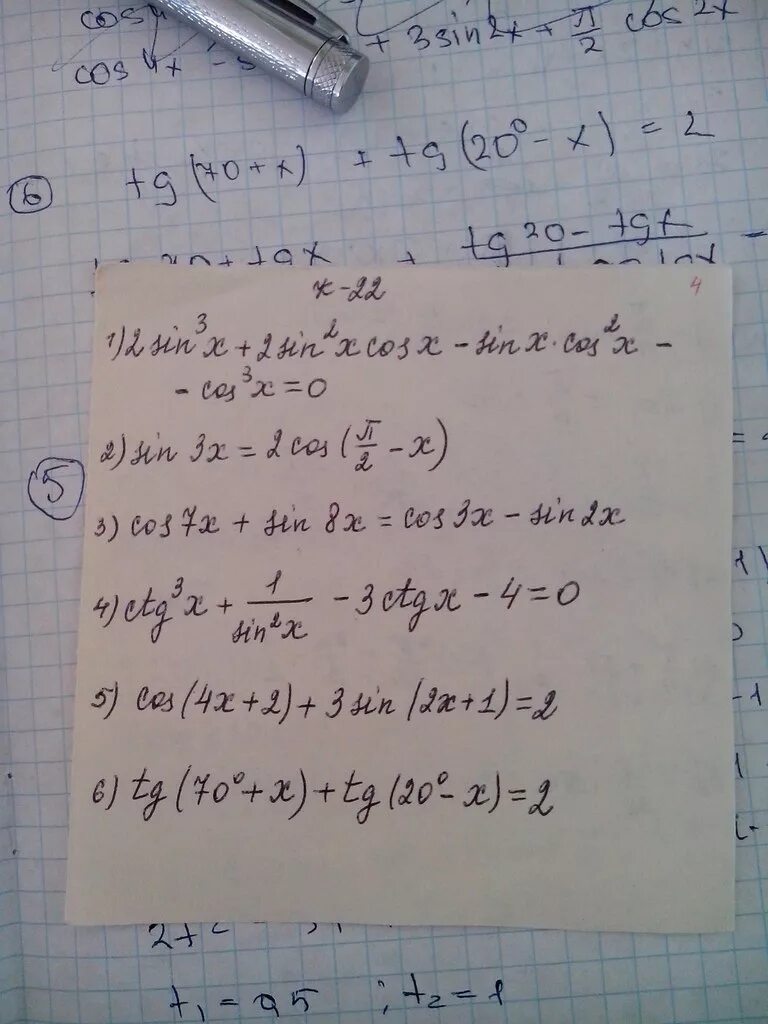 cos 4
cos 4x + 3 sin 2x + π/2 cos 2x
⑥ tg (70 + x) + tg (20° - x) = 2
tg 20 - tg x
к-22 4
1) 2 sin³x + 2 sin²x cos x - sin x · cos²x -
- cos³x = 0
2) sin 3x = 2 cos (π/2 - x)
⑤
3) cos 7x + sin 8x = cos 3x - sin 2x
4) ctg³x + 1/sin²x - 3 ctg x - 4 = 0
5) cos (4x + 2) + 3 sin (2x + 1) = 2
6) tg (70° + x) + tg (20° - x) = 2
t₁ = 0,5 ; t₂ = 1